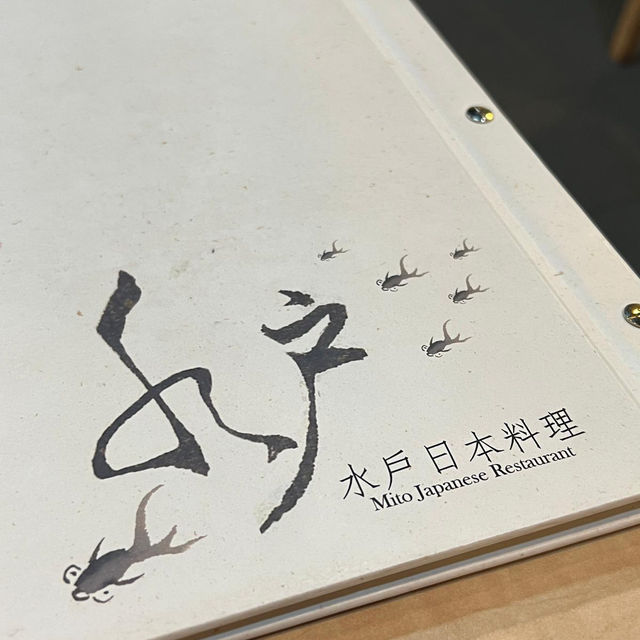 水戸
水戶日本料理
Mito Japanese Restaurant